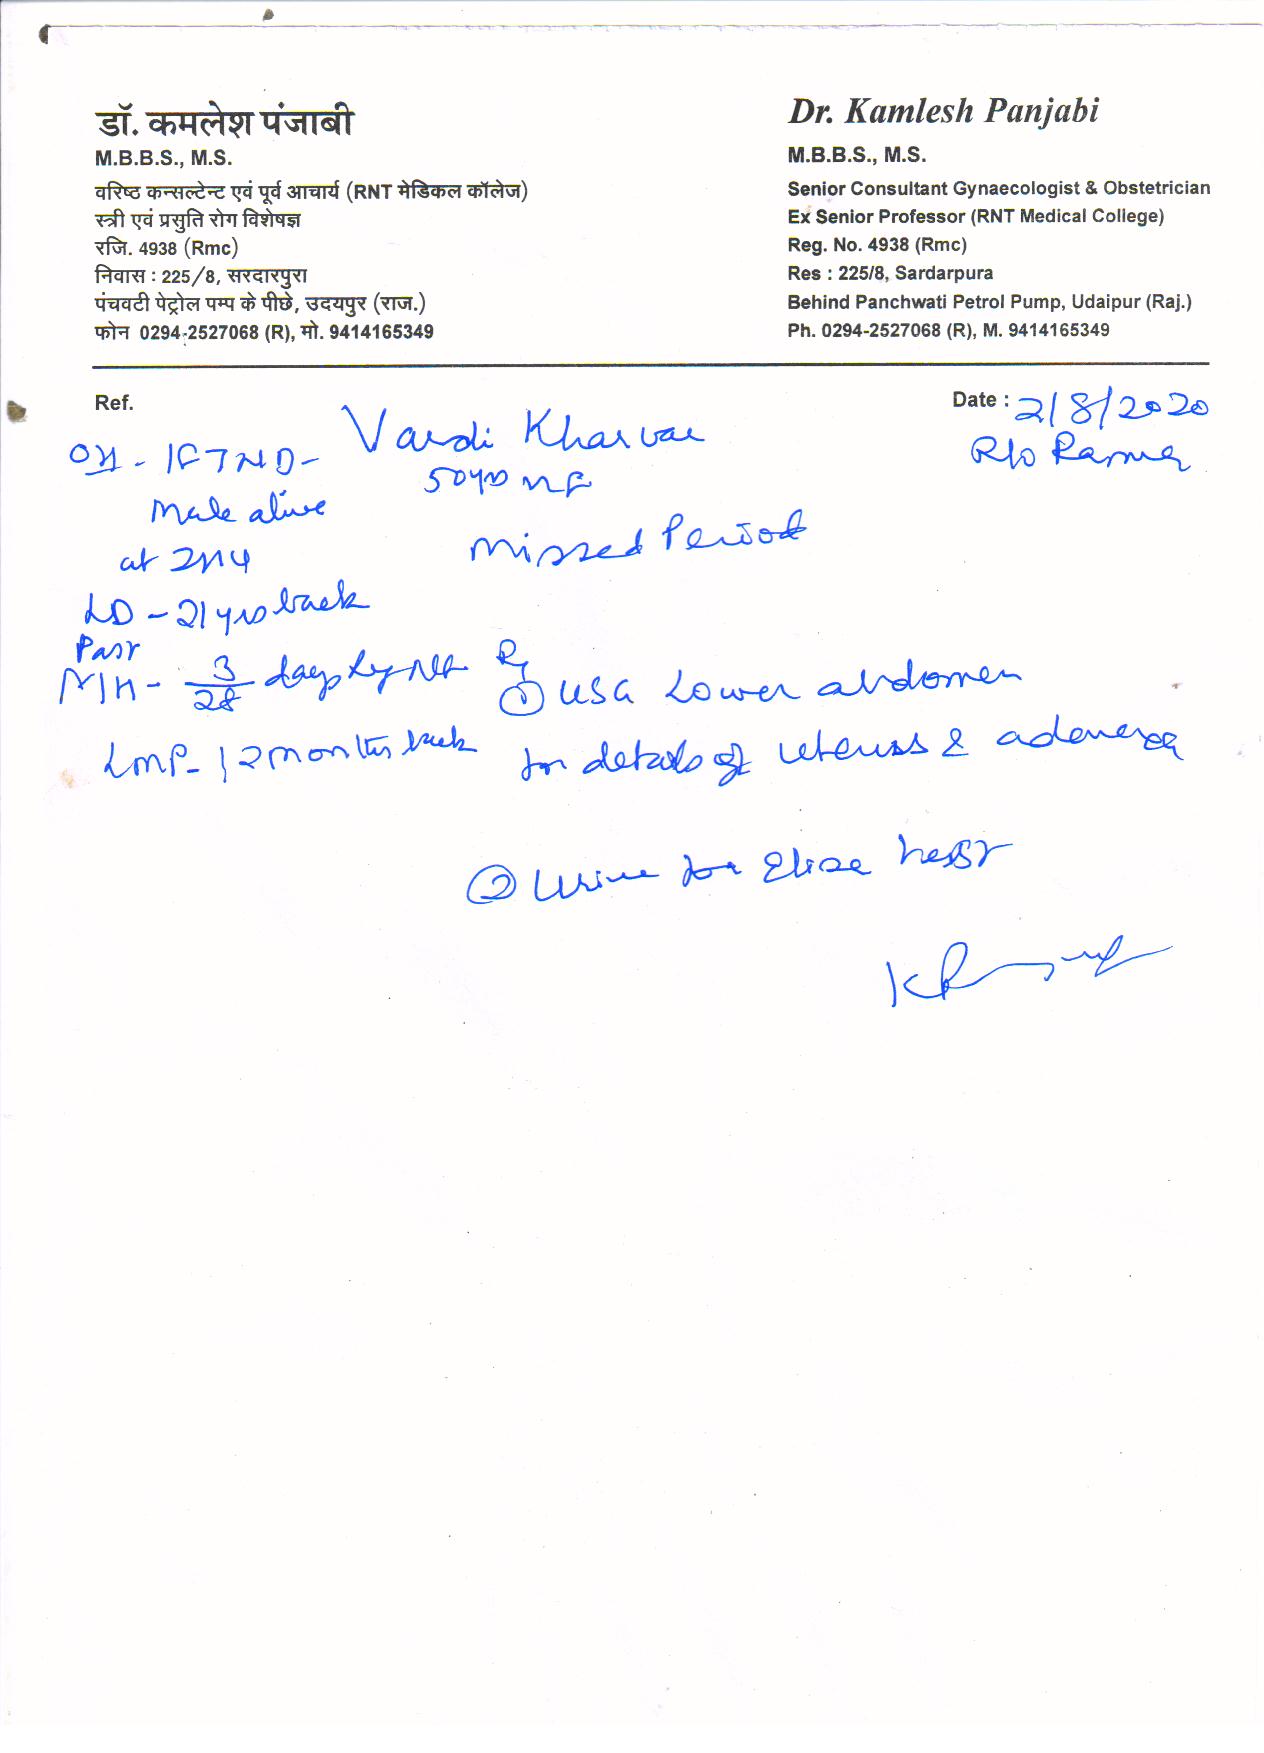 डॉ. कमलेश पंजाबी
M.B.B.S., M.S.
वरिष्ठ कन्सल्टेन्ट एवं पूर्व आचार्य (RNT मेडिकल कॉलेज)
स्त्री एवं प्रसुति रोग विशेषज्ञ
रजि. 4938 (Rmc)
निवास : 225/8, सरदारपुरा
पंचवटी पेट्रोल पम्प के पीछे, उदयपुर (राज.)
फोन 0294-2527068 (R), मो. 9414165349
Dr. Kamlesh Panjabi
M.B.B.S., M.S.
Senior Consultant Gynaecologist & Obstetrician
Ex Senior Professor (RNT Medical College)
Reg. No. 4938 (Rmc)
Res : 225/8, Sardarpura
Behind Panchwati Petrol Pump, Udaipur (Raj.)
Ph. 0294-2527068 (R), M. 9414165349
Ref.
Date : 2/8/2020
Vardi Kharvar
R/o
50yrs
OH - 1FTND -
Male alive
at
Missed Period
LD - 21 yrs back
Past
M/H - 3/28 days
LMP - 12 months back
Rx
① USG Lower abdomen
for details of uteruss & adenexa
② Urine for Elisa test